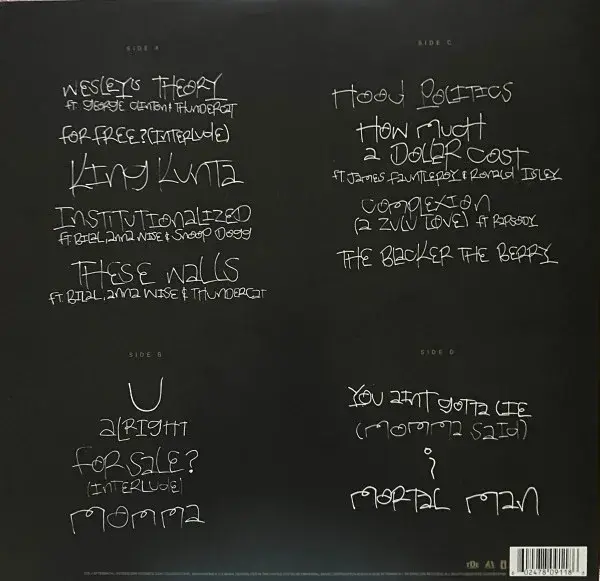 SIDE A
WESLEY'S THEORY
ft GEORGE CLINTON & THUNDERCAT
FOR FREE? (INTERLUDE)
KING KUNTA
INSTITUTIONALIZED
ft BILAL, ANNA WISE & SNOOP DOGG
THESE WALLS
ft. BILAL, ANNA WISE & THUNDERCAT
SIDE B
U
ALRIGHT
FOR SALE?
(INTERLUDE)
MOMMA
SIDE C
HOOD POLITICS
HOW MUCH
A DOLLAR COST
ft. JAMES FAUNTLEROY & RONALD ISLEY
COMPLEXION
(A ZULU LOVE) ft RAPSODY
THE BLACKER THE BERRY
SIDE D
YOU AINT GOTTA LIE
(MOMMA SAID)
i
MORTAL MAN
6 02478 09118 8